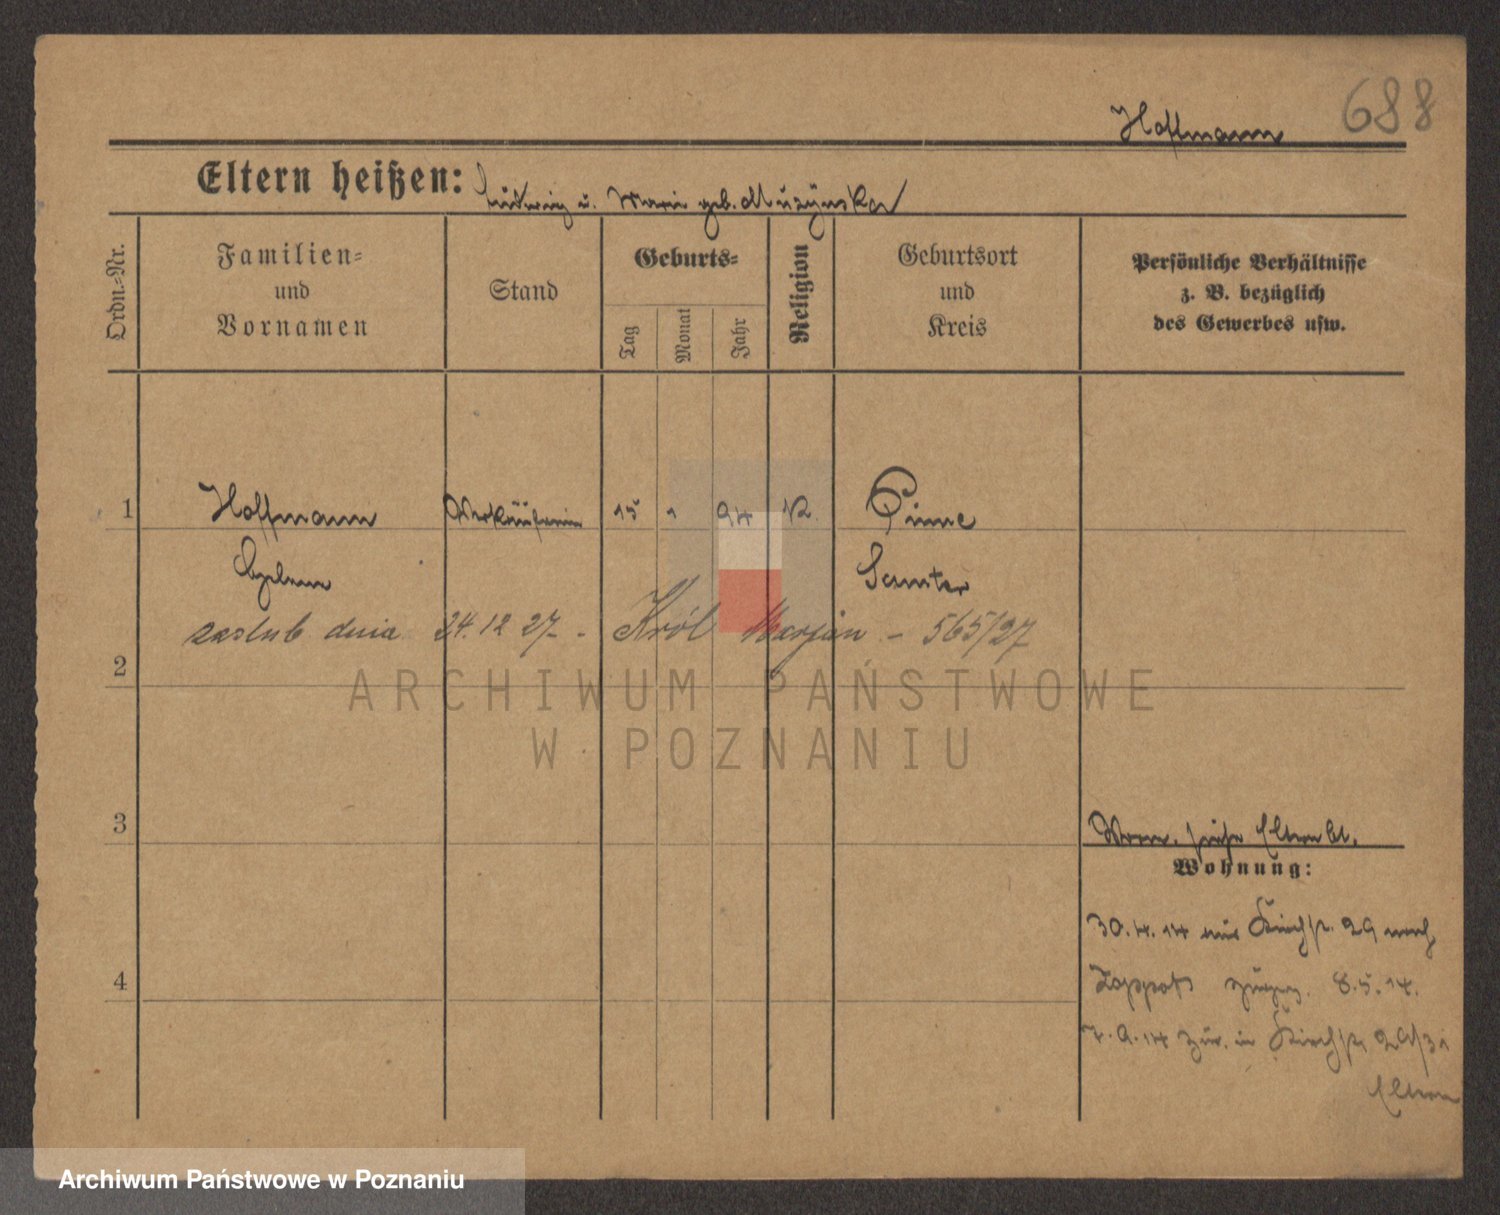 688
Hoffmann
Eltern heißen: Ludwig u. Marie geb. Muszynska
Ordn.-Nr.
Familien-
und
Vornamen
Stand
Geburts-
Tag
Monat
Jahr
Religion
Geburtsort
und
Kreis
Persönliche Verhältnisse
z. B. bezüglich
des Gewerbes usw.
1 Hoffmann Verkäuferin 15 1 94 K Pinne
Samter
zaślub dnia 24.12 27 - Król Marjan - 565/27
2
3
Vorm. siehe Elternbl.
Wohnung:
30.4.14 aus Kirchstr. 29 nach
Zoppot 8.5.14.
4
7.9.14 zur. in Kirchstr. 29/31
Eltern
ARCHIWUM PAŃSTWOWE
W POZNANIU
Archiwum Państwowe w Poznaniu